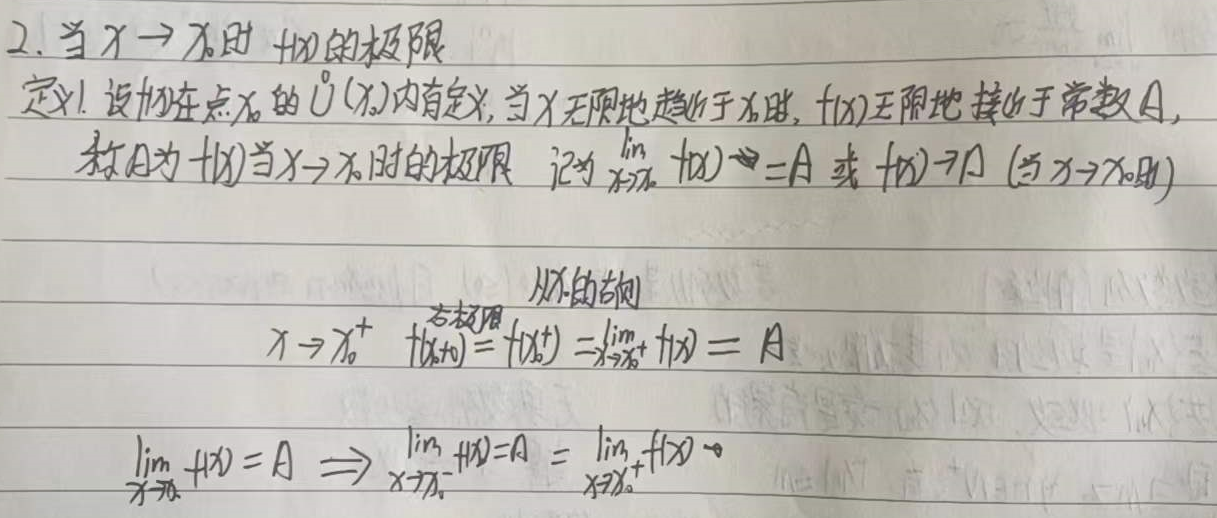 2. 当 x → x₀时 f(x)的极限
定义1. 设f(x)在点x₀的Ů(x₀)内有定义, 当x无限地趋近于x₀时, f(x)无限地接近于常数A,
称A为f(x)当x→x₀时的极限 记为 lim x→x₀ f(x) = A 或 f(x)→A (当x→x₀时)
从x₀的右侧
右极限
x → x₀⁺ f(x₀+0) = f(x₀⁺) = lim x→x₀⁺ f(x) = A
lim x→x₀ f(x) = A ⇒ lim x→x₀⁻ f(x) = A = lim x→x₀⁺ f(x)